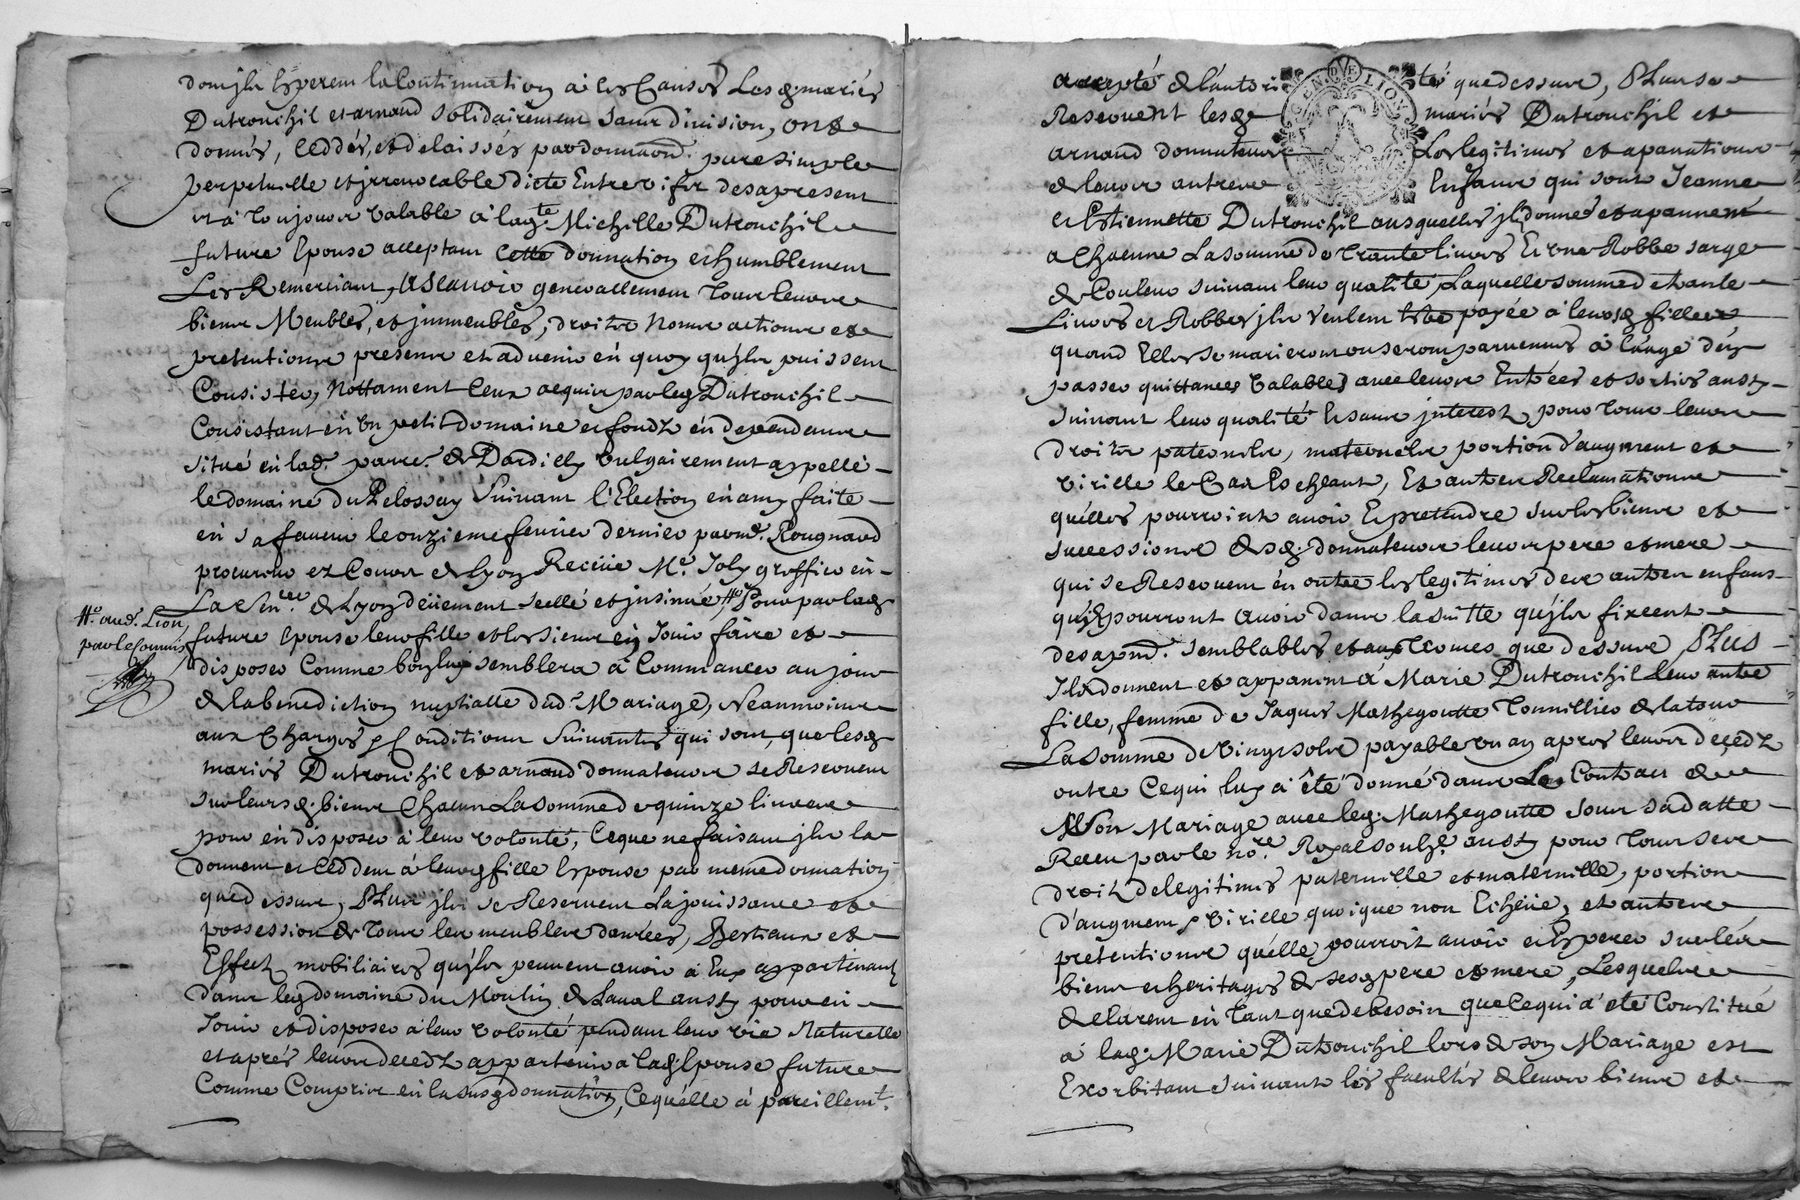 donjls Esperent la Continuation à Les Causes Lesd. mariés
Dutrouchil et arnaud solidairement sans division, ont
donnés, ceddés, et delaissés par donnaon. pure simple
perpetuelle et jrrevocable dicte Entre vifz des a present
et à toujours valable à ladte. Michelle Dutrouchil
future Epouse acceptant cette donnation et humblement
Les Remerciant, A Scavoir generallement tous leurs
biens Meubles, et jmmeubles, droitz Noms actions et
pretentions presens et advenir en quoy qu'jls puissent
Consister, Nottament Ceux acquis par led Dutrouchil
Consistant en un petit domaine et fondz en dependans
situé en lad. parre. de Dardilly vulgairement appellé
le domaine du Pelossay Suivant l'Election en amy faite
en sa faveur le onzieme fevrier dernier par me. Rougnard
procureur ez Cours de Lyon Receüe Me. Joly greffier en
La Sen.cée de Lyon deüement scellé et jnsinué, # Pour par lad
#. aud. Lion
par le Commis
future epouse leur fille et les siens en Jouir faire et
disposer Comme bon luy semblera à Commancer au jour
de la benediction nuptialle dud. Mariage, Neanmoins
aux Charges et Conditions Suivantes qui sont, que lesd
mariés Dutrouchil et arnaud donnateurs se Reservent
sur leursd. biens Chacun La somme de quinze livres
pour en disposer à leur volonté, Ce que ne faisant jls la
donnent et Ceddent à leurd fille Epouse par meme donnation
que dessus, Plus jls se Reservent La jouissance et
possession de tous les meubles danrées, Bestiaux et
Effectz mobiliaires qu'jls peuvent avoir à Eux appartenant
dans led domaine du Moulin de Laval aussy pour en
Jouir et disposer à leur volonté pendant leur vie Naturelle
et après leurs decedz appartenir a lad. Epouse future
Comme Compris en la susd donnation, Ce qu'elle à pareillemt.
accepté de l'autorité que dessus, Plus se
Reservent lesd mariés Dutrouchil et
arnaud donnateurs Les legitimes et apanations
de leurs autres Enfans qui sont Jeanne
et Estiennette Dutrouchil ausquelles jls donnes et apannent
a Chacune La somme de Trante livres Et une Robbe sarge
de Couleur suivant leur qualité, Laquelle somme de trante
Livres et Robbes jls veulent être payée à leursd filles
quand Elles se marieront ou seront parvenues à l'âge d'en
passer quittances valables avec leurs Entrées et sorties aussy
suivant leur qualité Et sans jnterest, pour tous leurs
droitz paternels, maternels, portion d'augment et
virille le Cas Escheant, Et autres Reclamations
qu'elles pourroint avoir Et pretendre sur les biens et
successions desd. donnateurs leurs pere et mere
qui se Reservent en outre les legitimes des autres enfans
qu'jls pourront avoir dans la suitte qu'jls fixent
des apnt. semblables et aux Termes que dessus Plus
Jls donnent et appannent à Marie Dutrouchil leur autre
fille, femme de Jaques Mathegoutte Tonnillier de la tour
La somme de Vingt solz payable un an apres leurs decedz
outre Ce qui luy à été donné dans Le Contract de
Son Mariage avec led. Mathegoutte sous sa datte
Receu par le nore. Royal soubz.é aussy pour tous ses
droitz de legitimes paternelle et maternelle, portion
d'augment et virille quoique non Echeüe, et autres
pretentions qu'elle pourroit avoir et Esperer sur les
biens et heritages de sesd pere et mere, Lesquels
declarent en tant que de besoin que Ce qui à été Constitué
à lad. Marie Dutrouchil lors de son Mariage est
Exorbitant suivant les facultés de leurs biens et
GEN. DE LION